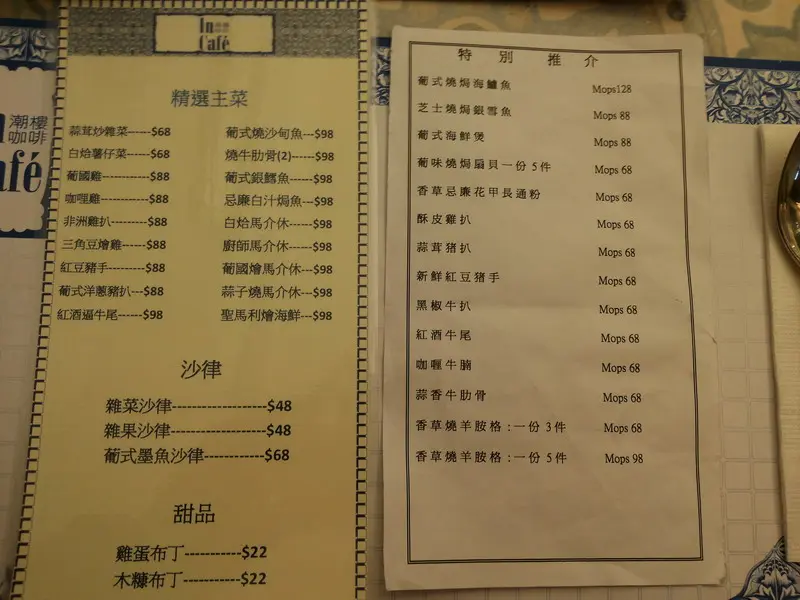 In
Café
精選主菜
蒜茸炒雜菜------$68
白烚薯仔菜-----$68
葡國雞----------$88
咖喱雞----------$88
非洲雞扒---------$88
三角豆燴雞------$88
紅豆豬手---------$88
葡式洋蔥豬扒---$88
紅酒逼牛尾-----$98
葡式燒沙甸魚---$98
燒牛肋骨(2)----$98
葡式銀鱈魚-----$98
忌廉白汁焗魚---$98
白烚馬介休-----$98
廚師馬介休-----$98
葡國燴馬介休---$98
蒜子燒馬介休---$98
聖馬利燴海鮮---$98
沙律
雜菜沙律-------------------$48
雜果沙律-------------------$48
葡式墨魚沙律------------$68
甜品
雞蛋布丁-----------$22
木糠布丁-----------$22
潮樓
咖啡
afé
特別推介
葡式燒焗海鱸魚 Mops128
芝士燒焗銀雪魚 Mops 88
葡式海鮮煲 Mops 88
葡味燒焗扇貝一份 5件 Mops 68
香草忌廉花甲長通粉 Mops 68
酥皮雞扒 Mops 68
蒜茸豬扒 Mops 68
新鮮紅豆豬手 Mops 68
黑椒牛扒 Mops 68
紅酒牛尾 Mops 68
咖喱牛腩 Mops 68
蒜香牛肋骨 Mops 68
香草燒羊胺格:一份 3件 Mops 68
香草燒羊胺格:一份 5件 Mops 98